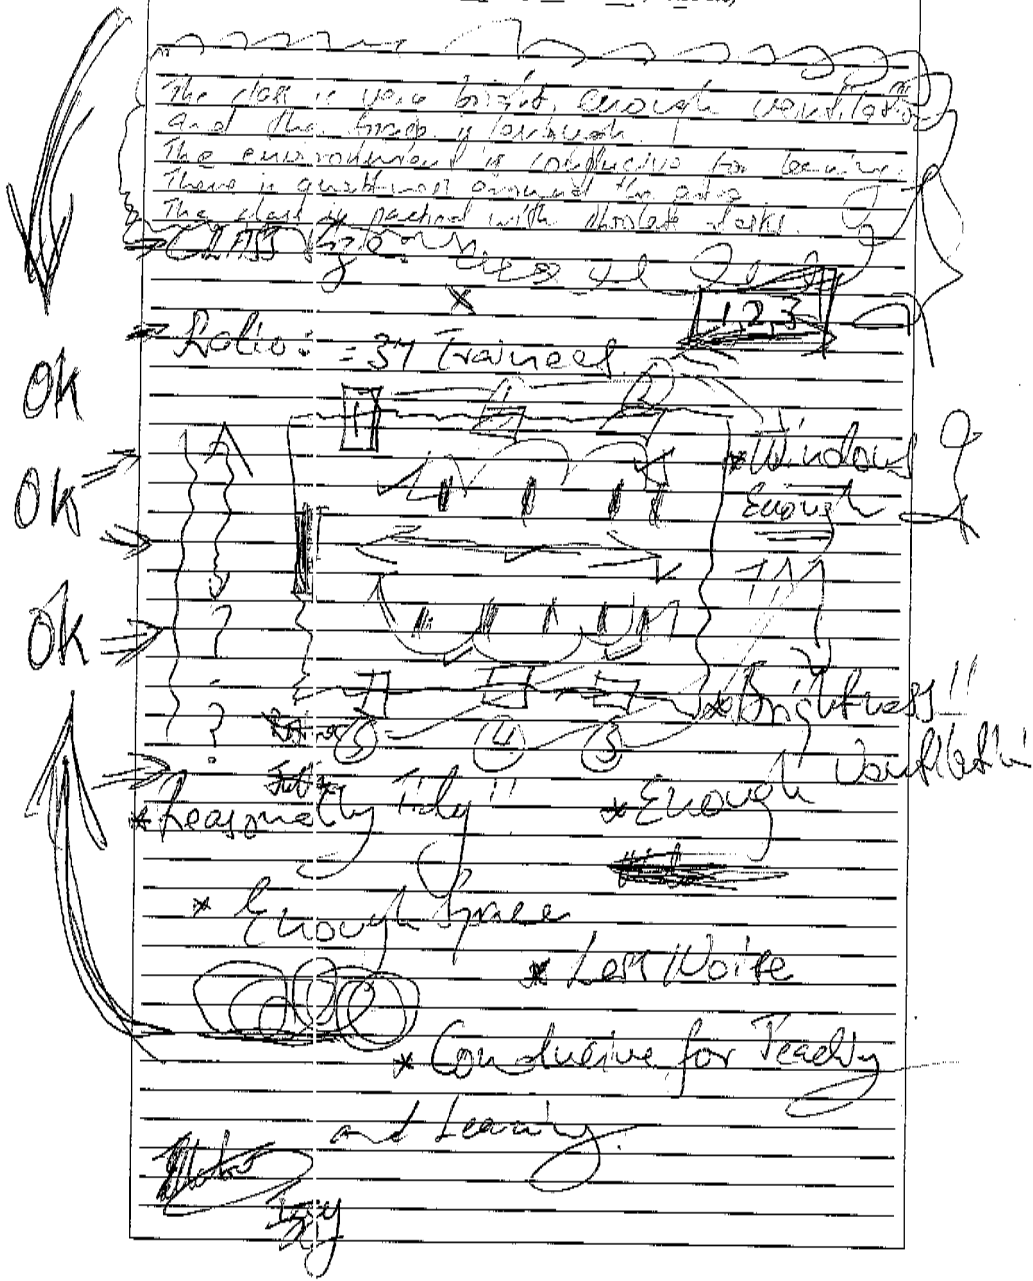 The class is very bright, enough ventilation
and the space is
The environment is conducive for learning.
There is quietness around the area
The class is packed with desks.
CLASS Size
1,2,3
Ratio: = 37 Trainees
1
Ok
* Windows
Enough
Ok
Ok
?
?
* Brightness!!
Ventilation
5 4 3
* Reasonably Tidy!!
* Enough
* Enough Space
* Less Noise
* Conducive for Teaching
and Learning.